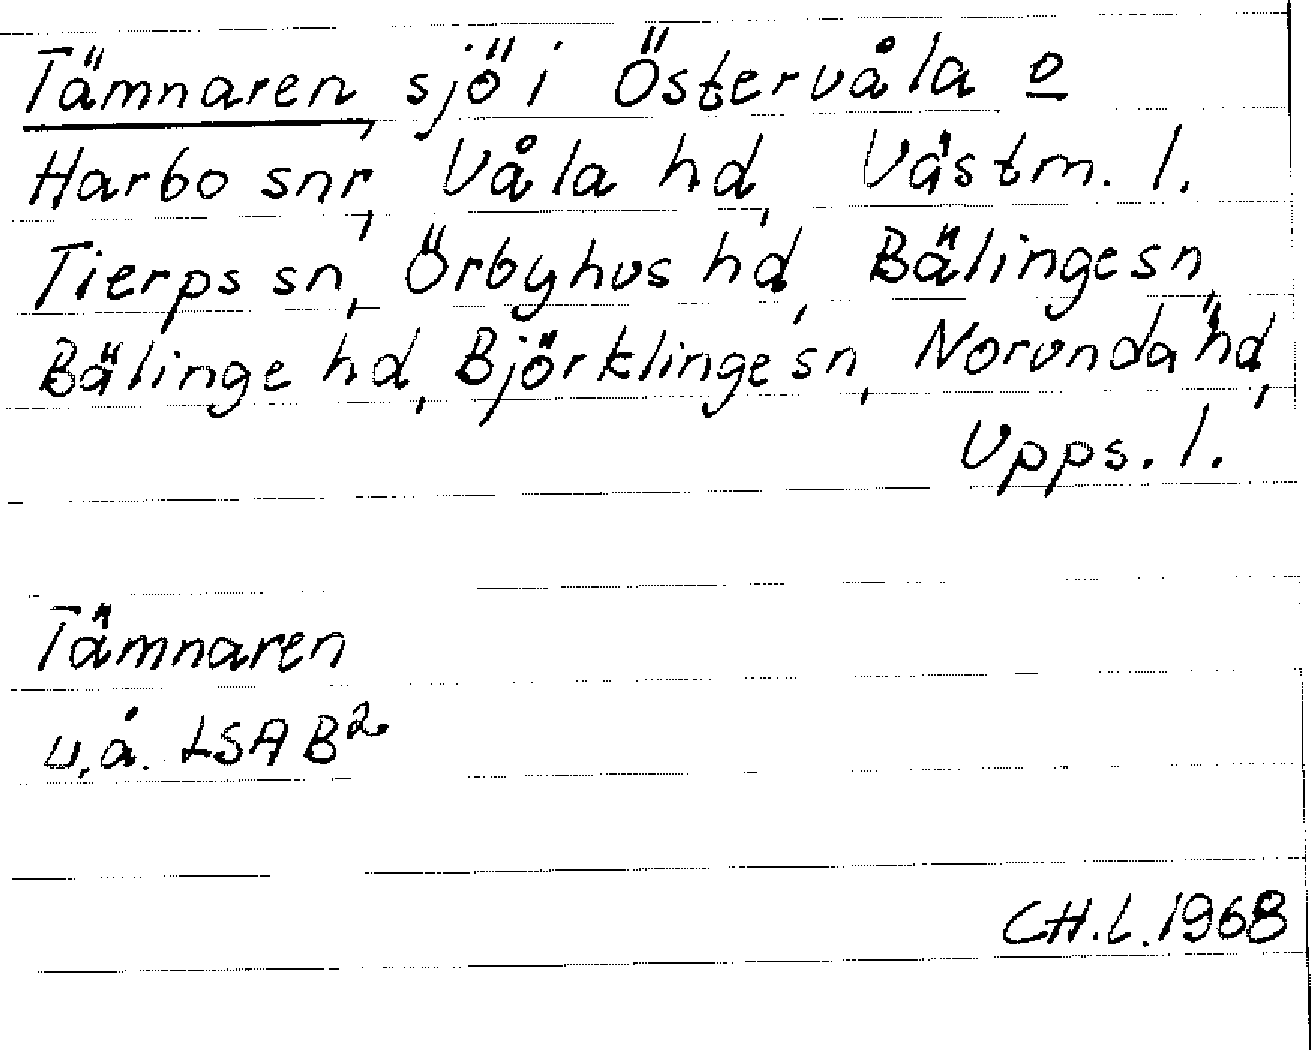 Tämnaren, sjö i Östervåla o
Harbo snr, Våla hd, Västm. l.
Tierps sn, Örbyhus hd, Bälinge sn,
Bälinge hd, Björklinge sn, Norunda hd,
Upps. l.
Tämnaren
u.å. LSA B2
CH.L. 1968